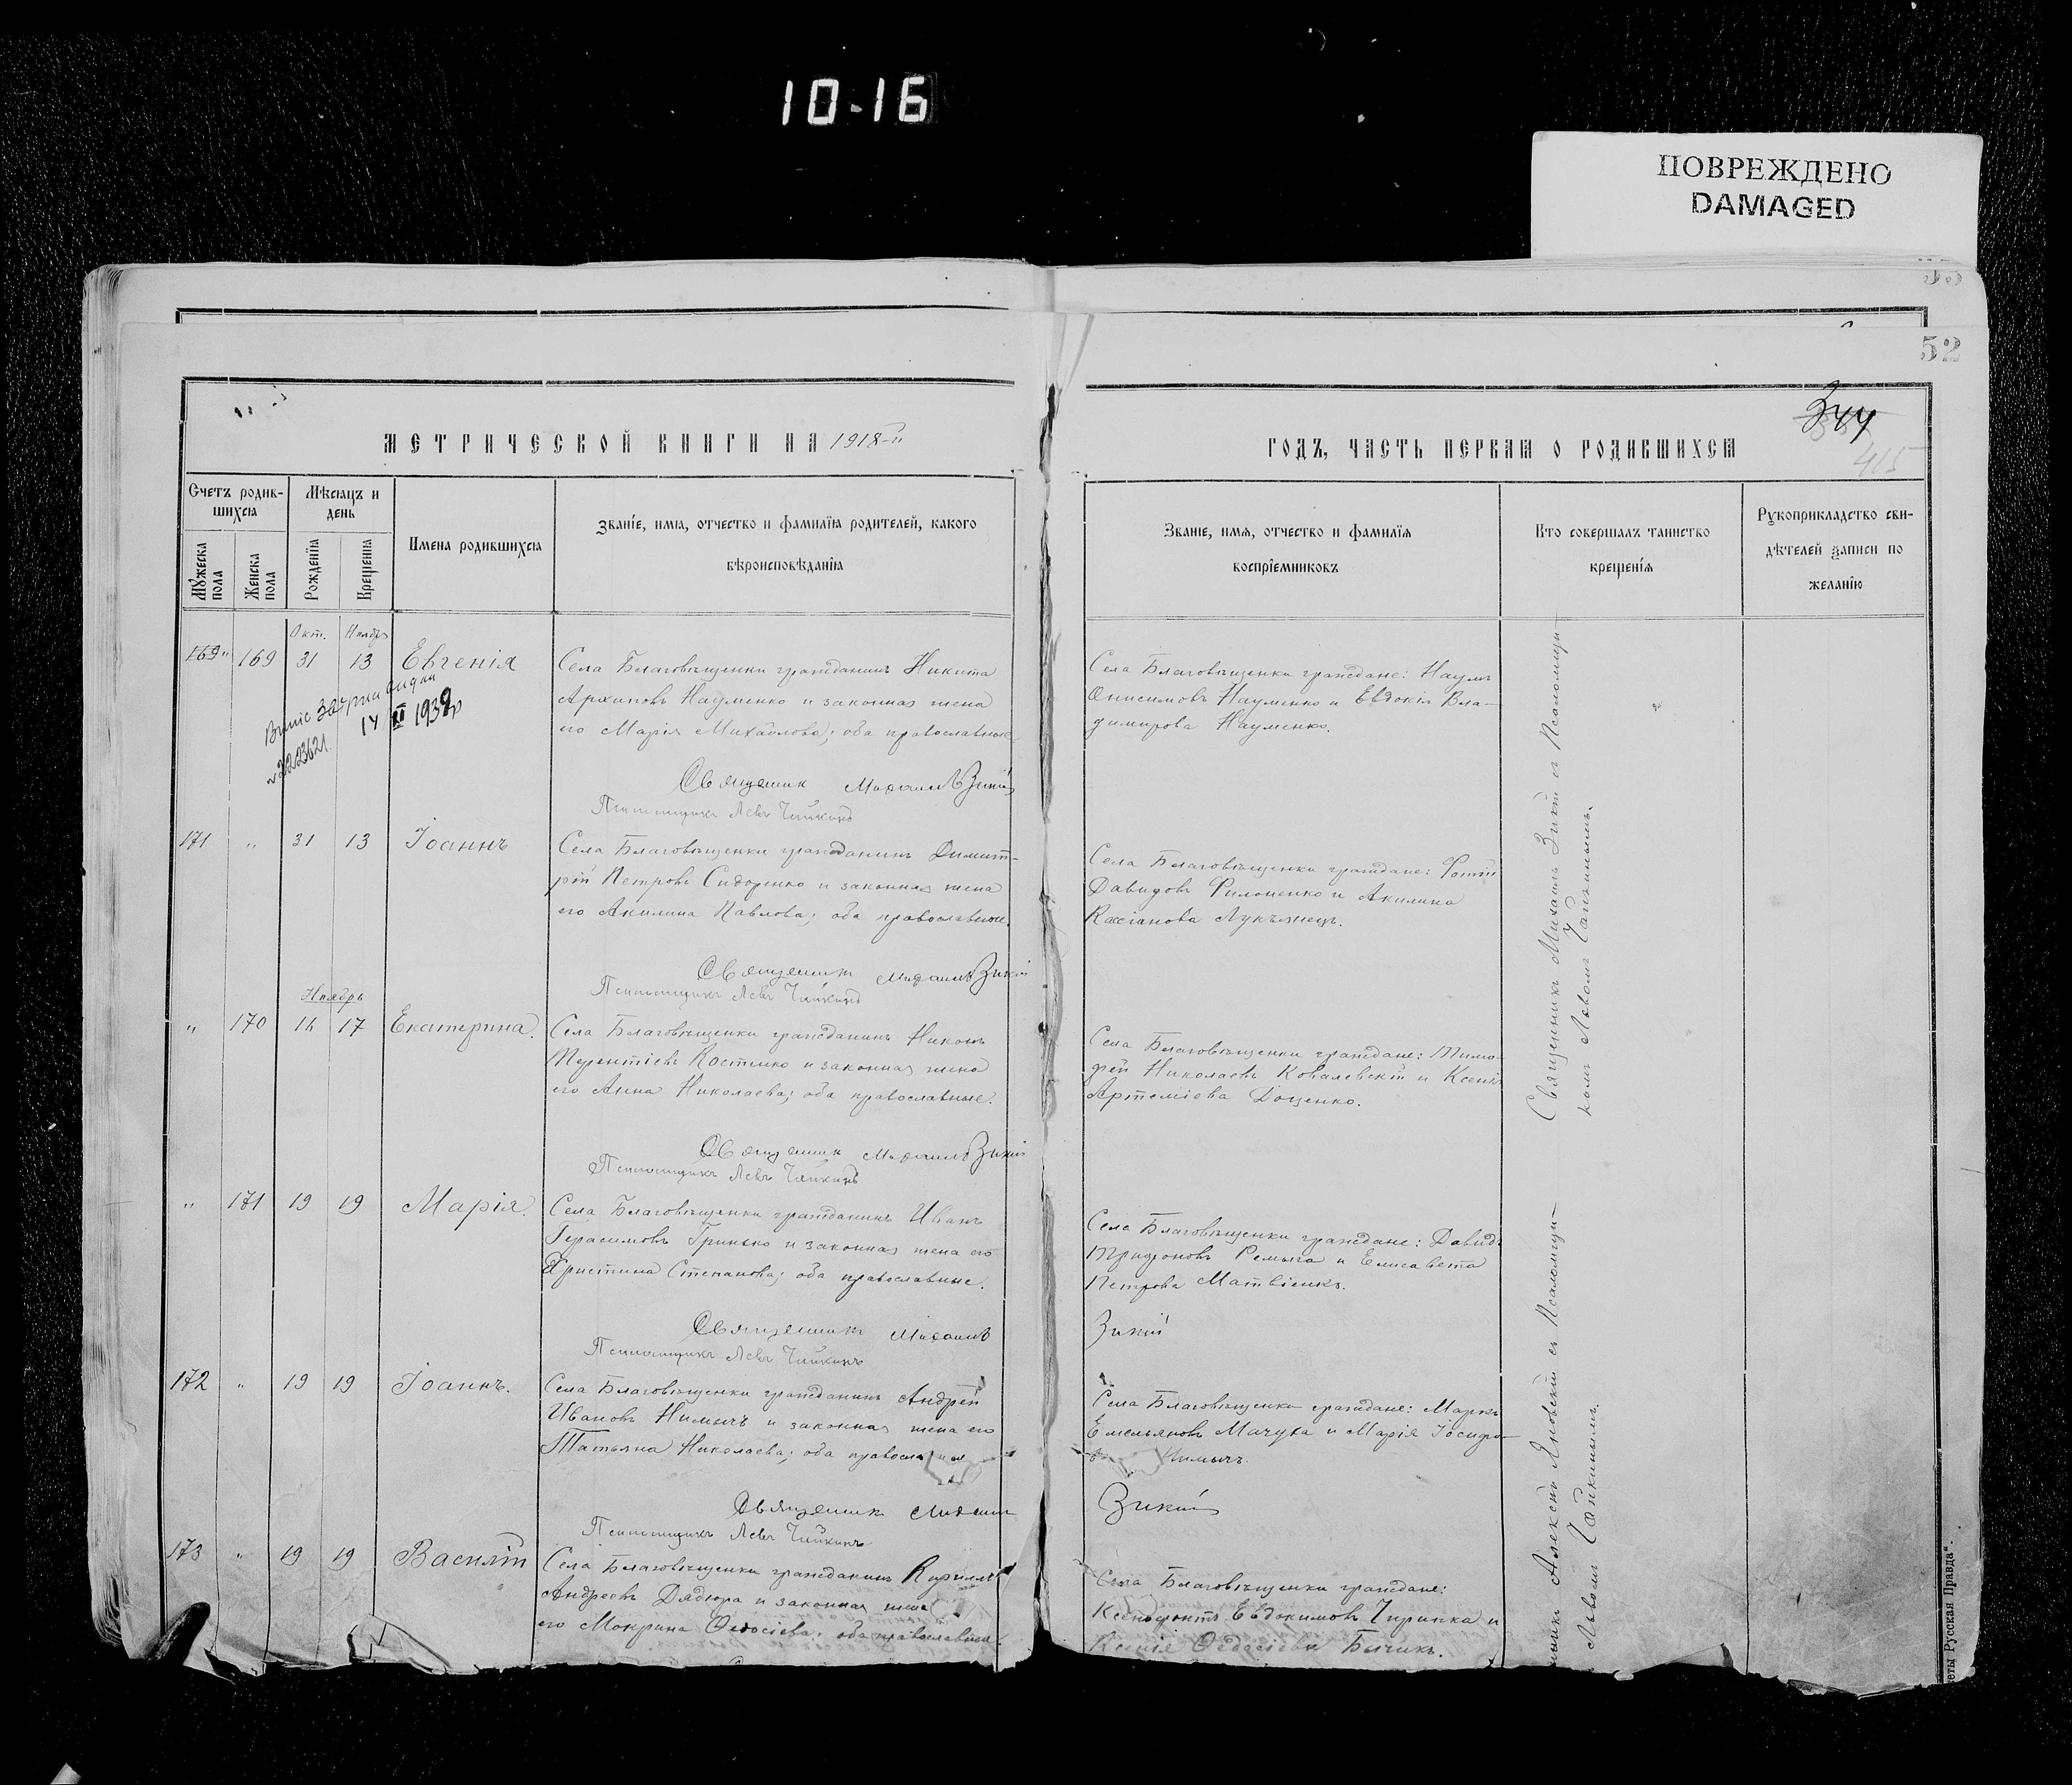 10-16
ПОВРЕЖДЕНО
DAMAGED
52
344
415
МЕТРИЧЕСКОЙ КНИГИ НА 1918-й
ГОДЪ, ЧАСТЬ ПЕРВАЯ О РОДИВШИХСЯ
Счетъ родив-
шихся
Мѣсяцъ и
день
Мужеска
пола
Женска
пола
Рожденія
Крещенія
Имена родившихся
Званіе, имя, отчество и фамилія родителей, какого
вѣроисповѣданія
Званіе, имя, отчество и фамилія
воспріемниковъ
Кто совершалъ таинство
крещенія
Рукоприкладство сви-
дѣтелей записи по
желанію
Окт. Ноябрь
169 " 169 31 13 Евгенія
Села Благовѣщенки гражданинъ Никита
Архиповъ Науменко и законная жена
его Марія Михайлова; оба православные
Села Благовѣщенки граждане: Наумъ
Онисимовъ Науменко и Евдокія Вла-
димирова Науменко.
14 XI 1939р
Священник Михаилъ Зикій
Псаломщикъ Левъ Чайкинъ
171 " 31 13 Іоаннъ
Села Благовѣщенки гражданинъ Димит-
рій Петровъ Сидоренко и законная жена
его Акилина Павлова; оба православные.
Села Благовѣщенки граждане: Фотій
Давидовъ Филоненко и Акилина
Кассіанова Лукъянецъ.
Священник Михаилъ Зикій
Псаломщикъ Левъ Чайкинъ
Ноябрь
" 170 16 17 Екатерина.
Села Благовѣщенки гражданинъ Никонъ
Терентіевъ Костенко и законная жена
его Анна Николаева; оба православные.
Села Благовѣщенки граждане: Тимо-
фей Николаевъ Ковалевскій и Ксенія
Артеміева Доценко.
Священник Михаилъ Зикій
Псаломщикъ Левъ Чайкинъ
" 171 19 19 Марія.
Села Благовѣщенки гражданинъ Иванъ
Герасимовъ Гринько и законная жена его
Христина Степанова; оба православные.
Села Благовѣщенки граждане: Давидъ
Трифоновъ Ремыга и Елисавета
Петрова Матвіенко.
Священник Михаилъ
Зикій
Псаломщикъ Левъ Чайкинъ
172 " 19 19 Іоаннъ.
Села Благовѣщенки гражданинъ Андрей
Ивановъ Нимычъ и законная жена его
Татьяна Николаева; оба православные
Села Благовѣщенки граждане: Маркъ
Емельяновъ Мачуха и Марія Іосифо-
в Нимычъ.
Священник Михаил
Зикій
Псаломщикъ Левъ Чайкинъ
173 " 19 19 Василій
Села Благовѣщенки гражданинъ Кириллъ
Андреевъ Дядюра и законная жена
его Мокрина Ѳеодосіева; оба православные.
Села Благовѣщенки граждане:
Ксенофонтъ Евдокимовъ Чиринка и
Ксенія Ѳеодосіева Бычикъ.
Священникъ Михаилъ Зикій съ Псаломщи-
комъ Львомъ Чайкинымъ.
Алексѣй Яновскій съ Псаломщи-
Львомъ Чайкинымъ.
еты Русская Правда“.